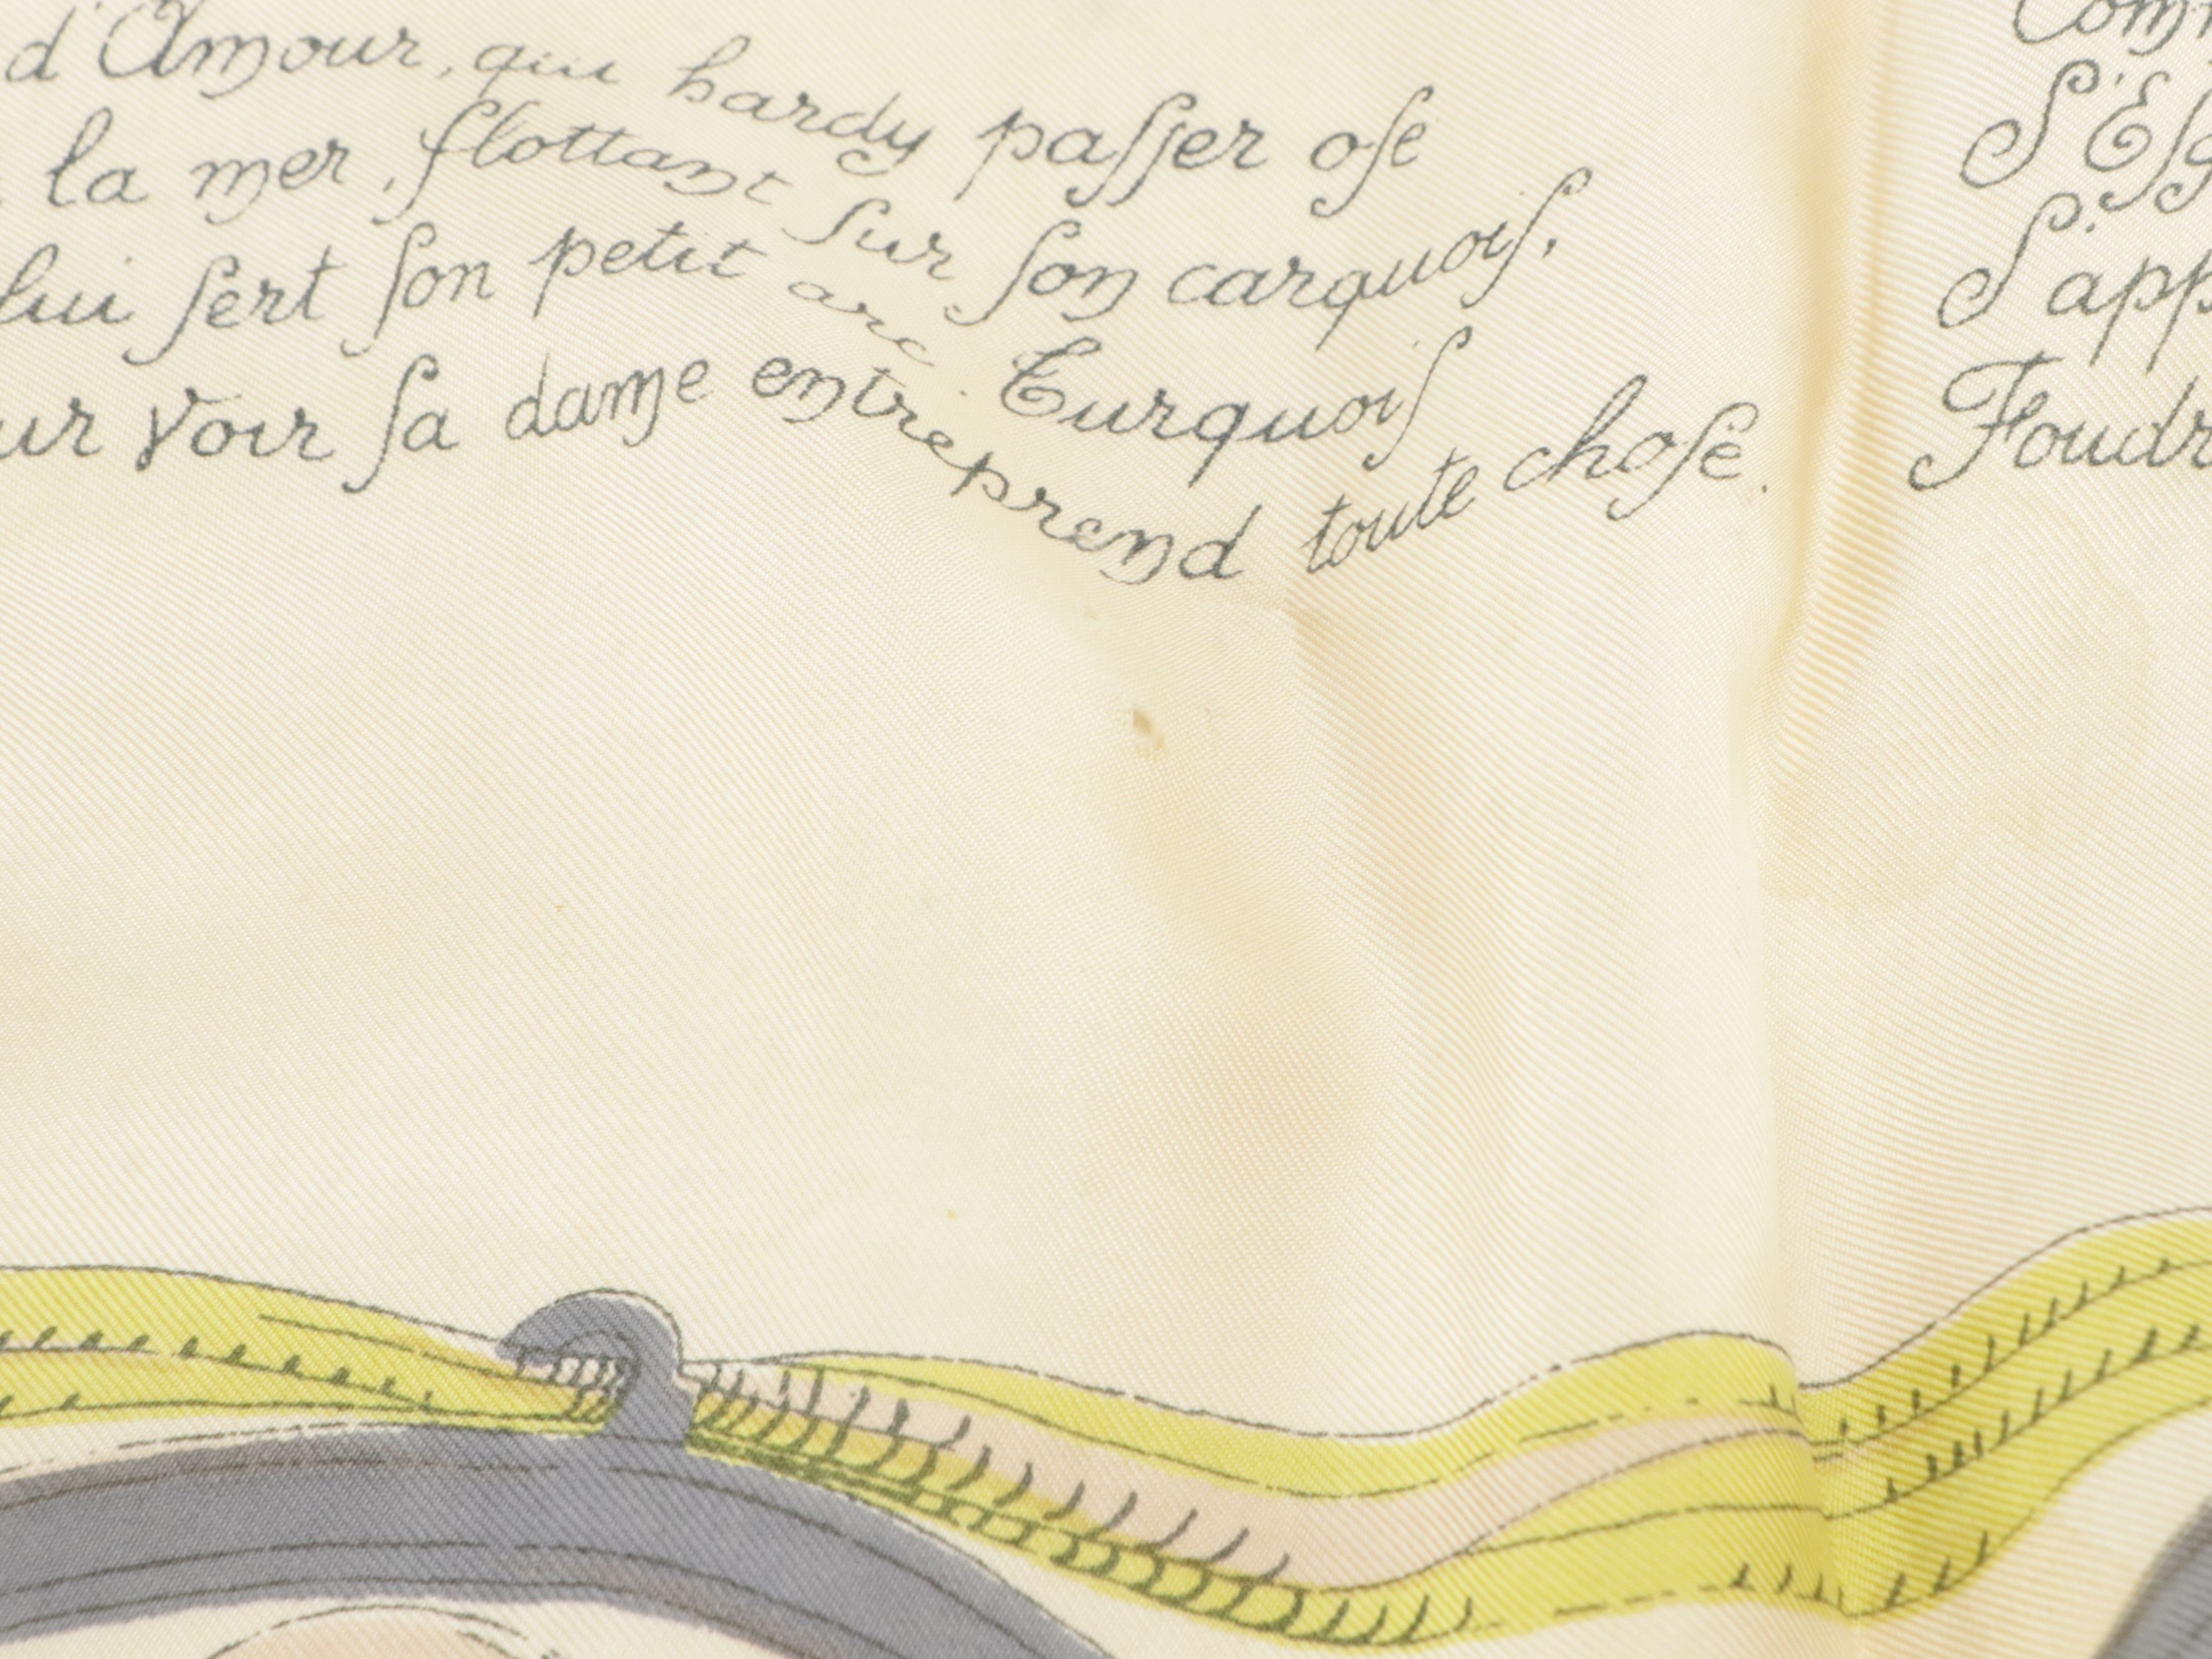 d'Amour, qui hardy paſſer oſe
la mer, flottant ſur ſon carquois,
lui ſert ſon petit arc Turquois
voir ſa dame entreprend toute choſe.
S'app
Foudr